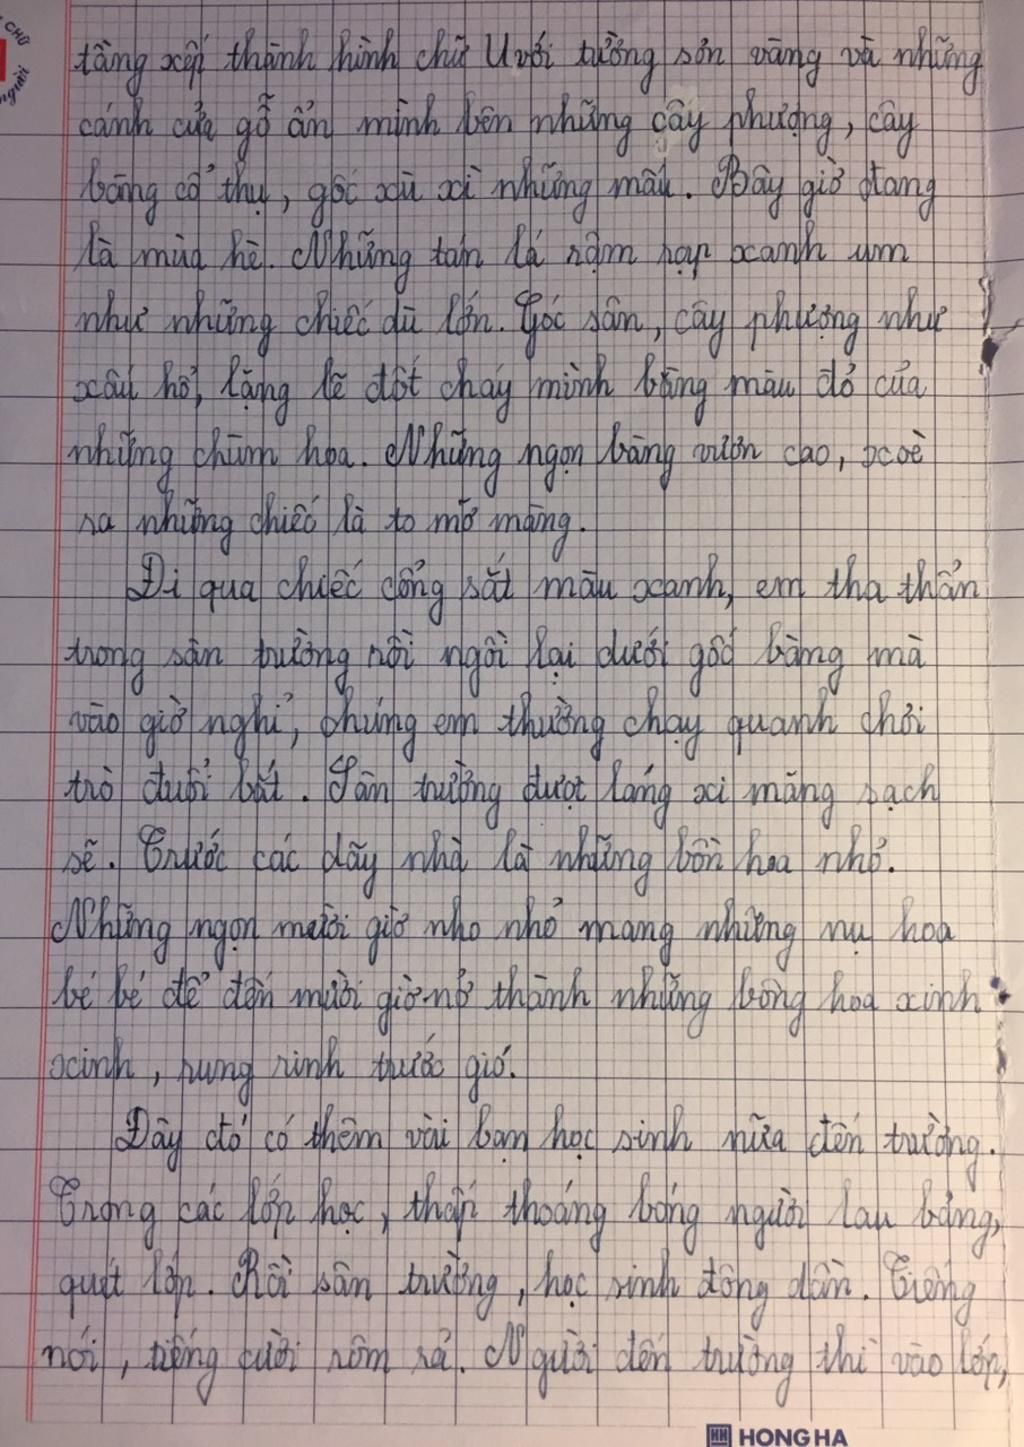 CHỮ
người
tầng xếp thành hình chữ U với tường sơn vàng và những
cánh cửa gỗ ẩn mình bên những cây phượng, cây
bàng cổ thụ, gốc xù xì những mấu. Bây giờ đang
là mùa hè. Những tán lá rậm rạp xanh um
như những chiếc dù lớn. Góc sân, cây phượng như
xấu hổ, lặng lẽ đốt cháy mình bằng màu đỏ của
những chùm hoa. Những ngọn bàng vươn cao, xoè
ra những chiếc lá to mỡ màng.
Đi qua chiếc cổng sắt màu xanh, em tha thẩn
trong sân trường rồi ngồi lại dưới gốc bàng mà
vào giờ nghỉ, chúng em thường chạy quanh chơi
trò đuổi bắt. Sân trường được láng xi măng sạch
sẽ. Trước các dãy nhà là những bồn hoa nhỏ.
Những ngọn mười giờ nho nhỏ mang những nụ hoa
bé bé để đến mười giờ nở thành những bông hoa xinh
xinh, rung rinh trước gió.
Đây đó có thêm vài bạn học sinh nữa đến trường.
Trong các lớp học, thấp thoáng bóng người lau bảng,
quét lớp. Rồi sân trường, học sinh đông dần. Tiếng
nói, tiếng cười rôm rả. Người đến trường thì vào lớp,
HH HONG HA